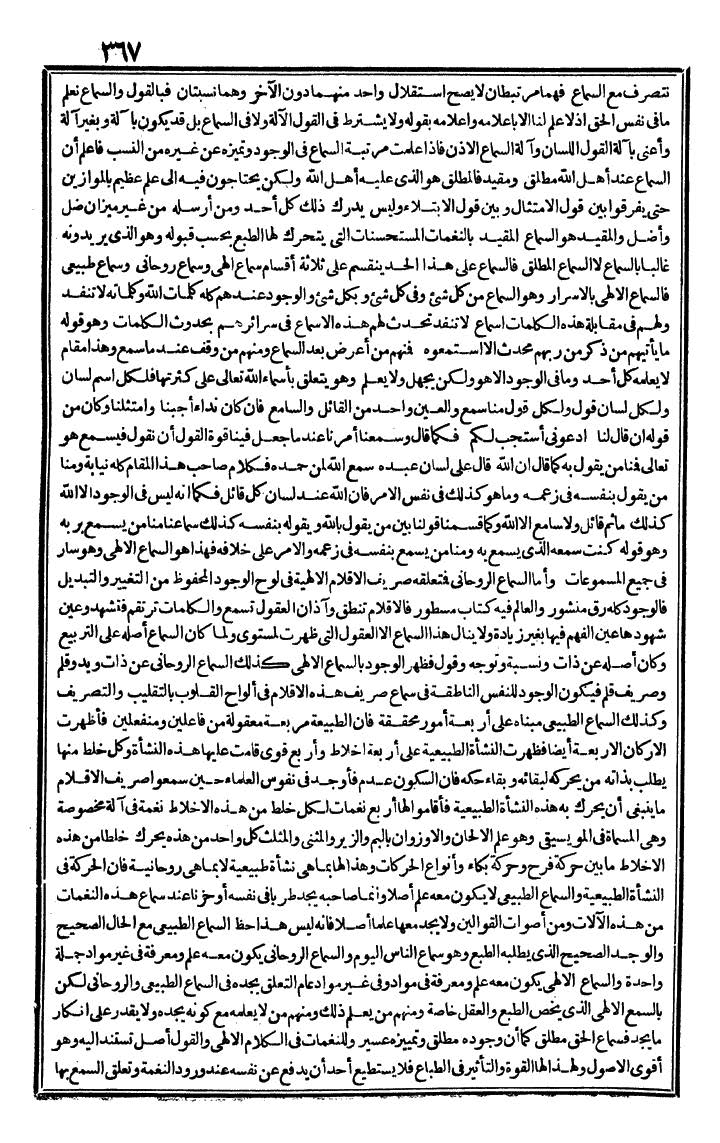 ٣٦٧
تتصرف مع السماع فهما مرتبطان لا يصح استقلال واحد منهما دون الآخر وهما نسبتان فبالقول والسماع نعلم
ما فى نفس الحق اذ لا علم لنا الا باعلامه واعلامه بقوله ولا يشترط فى القول الآلة ولا فى السماع بل قد يكون بآلة وبغير آلة
وأعنى بآلة القول اللسان وآلة السماع الاذن فاذا علمت مرتبة السماع فى الوجود وتميزه عن غيره من النسب فاعلم أن
السماع عند أهل الله مطلق ومقيد فالمطلق هو الذى عليه أهل الله ولكن يحتاجون فيه الى علم عظيم بالموازين
حتى يفرقوا بين قول الامتثال وبين قول الابتلاء وليس يدرك ذلك كل أحد ومن أرسله من غير ميزان ضل
وأضل والمقيد هو السماع المقيد بالنغمات المستحسنات التى يتحرك لها الطبع بحسب قبوله وهو الذى يريدونه
غالبا بالسماع لا السماع المطلق فالسماع على هذا الحد ينقسم على ثلاثة أقسام سماع الهى وسماع روحانى وسماع طبيعى
فالسماع الالهى بالاسرار وهو السماع من كل شئ وفى كل شئ وبكل شئ والوجود عندهم كله كلمات الله وكلماته لا تنفد
ولهم فى مقابلة هذه الكلمات اسماع لا تنفد تحدث لهم هذه الاسماع فى سرائرهم بحدوث الكلمات وهو قوله
ما يأتيهم من ذكر من ربهم محدث الا استمعوه فنهم من أعرض بعد السماع ومنهم من وقف عند ما سمع وهذا مقام
لا يعلمه كل أحد وما فى الوجود الا هو ولكن يجهل ولا يعلم وهو يتعلق بأسماء الله تعالى على كثرتها فلكل اسم لسان
ولكل لسان قول ولكل قول منا سمع والعين واحدة من القائل والسامع فان كان نداء أجبنا وامتثلنا وكان من
قوله ان قال لنا ادعونى أستجب لكم فكما قال وسمعنا أمرنا عند ما جعل فينا قوة القول أن نقول فيسمع هو
تعالى فنا من يقول به كما قال ان الله قال على لسان عبده سمع الله لمن حمده فكلام صاحب هذا المقام كله نيابة ومنا
من يقول بنفسه فى زعمه وما هو كذلك فى نفس الامر فان الله عند لسان كل قائل فكما انه ليس فى الوجود الا الله
كذلك ما ثم قائل ولا سامع الا الله وكما قسمنا قولنا بين من يقول بالله ويقوله بنفسه كذلك سماعنا منا من يسمع بربه
وهو قوله كنت سمعه الذى يسمع به ومنا من يسمع بنفسه فى زعمه والامر على خلافه فهذا هو السماع الالهى وهو سار
فى جميع المسموعات وأما السماع الروحانى فتعلقه صريف الاقلام الالهية فى لوح الوجود المحفوظ من التغيير والتبديل
فالوجود كله رق منشور والعالم فيه كتاب مسطور فالاقلام تنطق وآذان العقول تسمع والكلمات ترتقم فتشهد وعين
شهودها عين الفهم فيها بغير زيادة ولا ينال هذا السماع الا العقول التى ظهرت لمستوى ولما كان السماع أصله على التربيع
وكان أصله عن ذات ونسبة وتوجه وقول فظهر الوجود بالسماع الالهى كذلك السماع الروحانى عن ذات ويد وقلم
وصريف قلم فيكون الوجود للنفس الناطقة فى سماع صريف هذه الاقلام فى ألواح القلوب بالتقليب والتصريف
وكذلك السماع الطبيعى مبناه على أربعة أمور محققة فان الطبيعة مربعة معقولة من فاعلين ومنفعلين فأظهرت
الاركان الاربعة أيضا فظهرت النشأة الطبيعية على أربعة اخلاط وأربع قوى قامت عليها هذه النشأة وكل خلط منها
يطلب بذاته من يحركه لبقائه وبقاء حكمه فان السكون عدم فأوجد فى نفوس العلماء حين سمعوا صريف الاقلام
ما ينبغى أن يحرك به هذه النشأة الطبيعية فأقاموا لها أربع نغمات لكل خلط من هذه الاخلاط نغمة فى آلة مخصوصة
وهى المسماة فى الموسيقى وهو علم الالحان والاوزان بالبم والزير والمثنى والمثلث كل واحد من هذه يحرك خلطا من هذه
الاخلاط ما بين حركة فرح وحركة بكاء وأنواع الحركات وهذا لها بما هى نشأة طبيعية لا بما هى روحانية فان الحركة فى
النشأة الطبيعية والسماع الطبيعى لا يكون معه علم أصلا وانما صاحبه يجد طربا فى نفسه أو حزنا عند سماع هذه النغمات
من هذه الآلات ومن أصوات القوالين ولا يجد معها علما أصلا فانه ليس هذا حظ السماع الطبيعى مع الحال الصحيح
والوجد الصحيح الذى يطلبه الطبع وهو سماع الناس اليوم والسماع الروحانى يكون معه علم ومعرفة فى غير مواد جملة
واحدة والسماع الالهى يكون معه علم ومعرفة فى مواد وفى غير مواد عام التعلق يجده فى السماع الطبيعى والروحانى لكن
بالسمع الالهى الذى يخص الطبع والعقل خاصة ومنهم من يعلم ذلك ومنهم من لا يعلمه مع كونه يجده ولا يقدر على انكار
ما يجد فسماع الحق مطلق كما أن وجوده مطلق وتمييزه عسير وللنغمات فى الكلام الالهى والقول أصل تستند اليه وهو
أقوى الاصول ولهذا لها القوة والتأثير فى الطباع فلا يستطيع أحد أن يدفع عن نفسه عند ورود النغمة وتعلق السمع بها